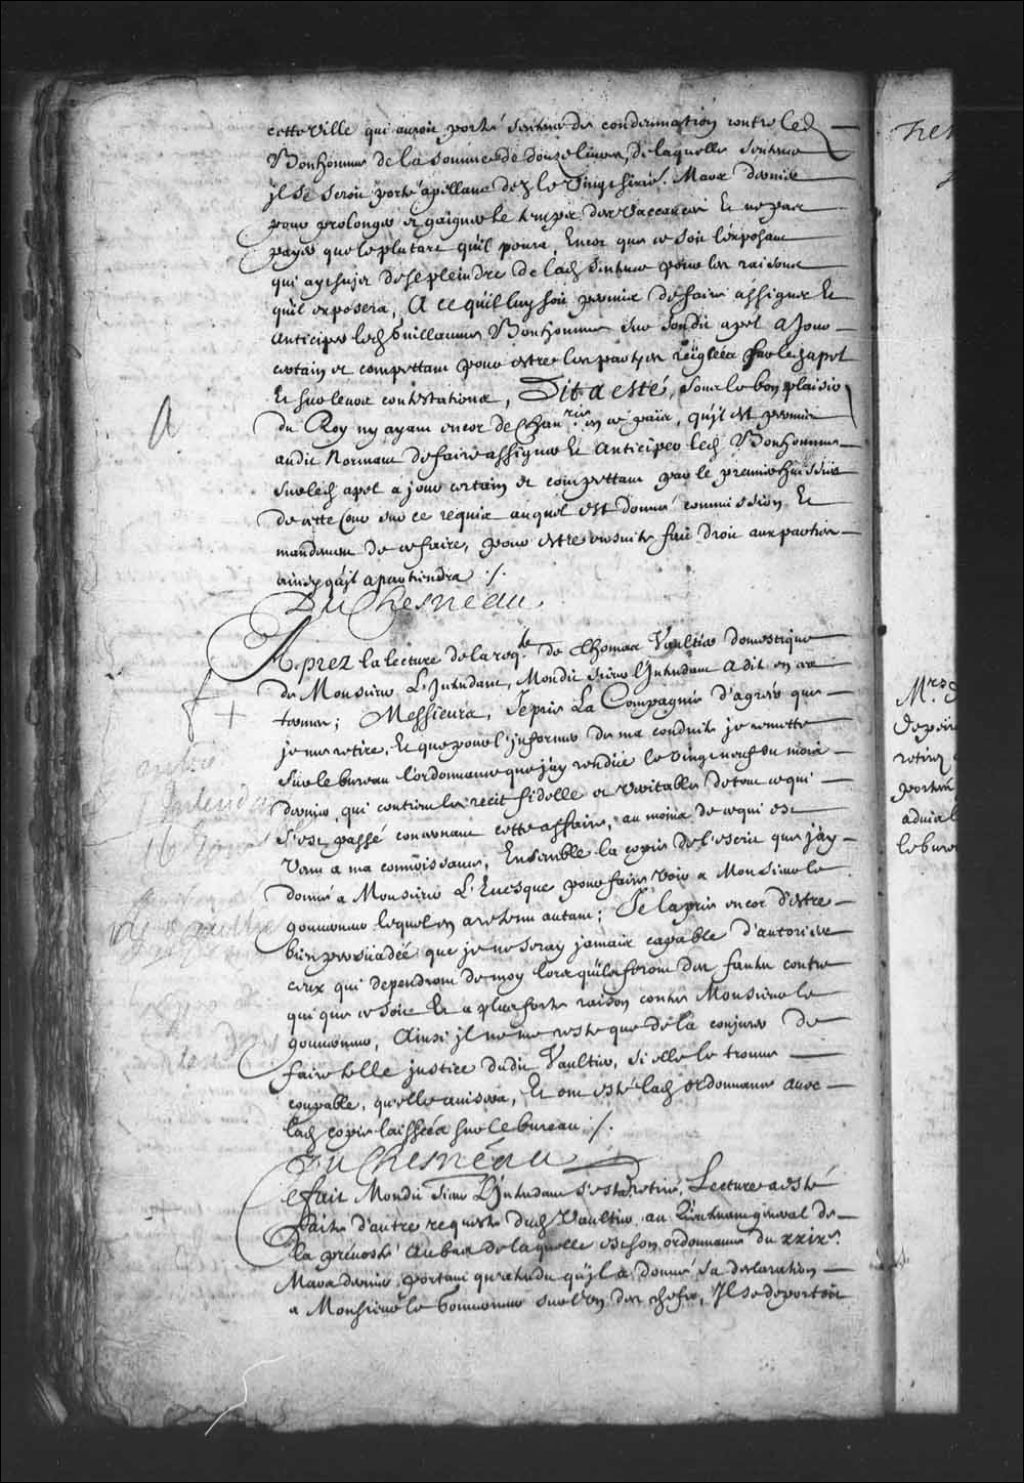 cette ville qui auroit porté sentence de condemnation contre led
Bonhomme de la somme de douze liures, de laquelle sentence
jl se seroit porté apellant dez le vingt sixie. Mars dernier
pour prolonger et gaigner le temps des vaccances Et ne pas
payer que le plutard qu'il poura, Encor que ce soit l'exposant
qui aye sujet de se pleindre de lad sentence pour les raisons
qu'il exposera, A ce qu'il luy soit permis de faire assigner Et
anticiper led Guillaume Bonhomme sur sondit apel a jour
certain et compettant pour estre les parties reiglées sur led apel
Et sur leurs contestations, Dit a esté, soubz le bon plaisir
du Roy ny ayant encor de Chanrie en ce païs, qu'jl est permis
audit Normant de faire assigner Et anticiper led Bonhomme
sur led apel a jour certain et compettant par le premier huissier
de cette Cour sur ce requis auquel est donné commission Et
mandement de ce faire, pour estre ensuite fait droit aux parties
ainsy qu'jl apartiendra ./.
DuChesneau
A
Aprez la lecture de la reqte de Thomas Vaultier domestique
de Monsieur L'Jntendant, Mondit sieur l'Jntendant a dit en ces
termes; Messieurs, Je prie La Compagnie d'agréer que
je me retire, Et que pour l'jnformer de ma conduite je remette
sur le bureau l'ordonnance que j'ay rendüe le vingt neuf du mois
dernier, qui contient le recit fidelle et veritable de tout ce qui
s'est passé concernant cette affaire, au moins de ce qui est
venu a ma connoissance; Ensemble la copie de l'escrit que j'ay
donné a Monsieur L'Euesque pour faire voir a Monsieur le
gouuerneur lequel en a retenu autant; Je la prie encor d'estre
bien persuadée que je ne seray jamais capable d'autoriser
ceux qui dependront de moy lors qu'ils feront des fautes contre
qui que ce soit Et a plus forte raison contre Monsieur le
gouuerneur, Ainsi jl ne me reste que de la conjurer de
faire telle justice dudit Vaultier, si elle le trouue
coupable, qu'elle auisera, Et ont esté lad ordonnance auec
lad copie laissées sur le bureau ./.
DuChesneau
Ce fait Mondit sieur L'Jntendant s'est retiré, Lecture a esté
faite d'autre requeste dud Vaultier, au Lieutenant general de
la preuosté au bas de laquelle est son ordonnance du xxixe.
Mars dernier, portant qu'attendu qu'jl a donné sa declaration
a Monsieur le Gouuerneur sur l'un des chefs, Jl se deportoit
Mrs